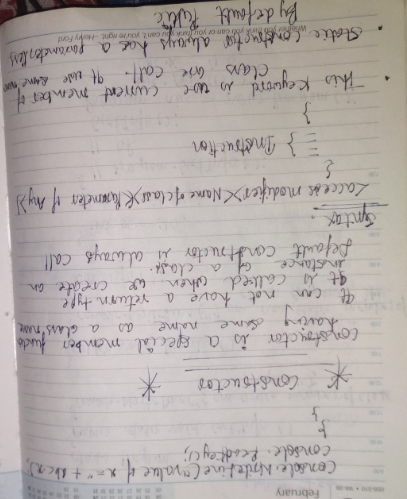 February
Console.WriteLine("value of x=" + abc.x);
Console.ReadKey();
}
}
* Constructor *
Constructor is a special member function
having same name as a class name
It can not have a return type
It is called when we create an
instance of a class.
Default constructor is always call
Syntax:
<access modifier> <Name of class> (<Parameter if Any>)
{
} Instruction
}
• This keyword is use current member of
class are call. If use same name
• Static constructor always has a parameterless
By default Public